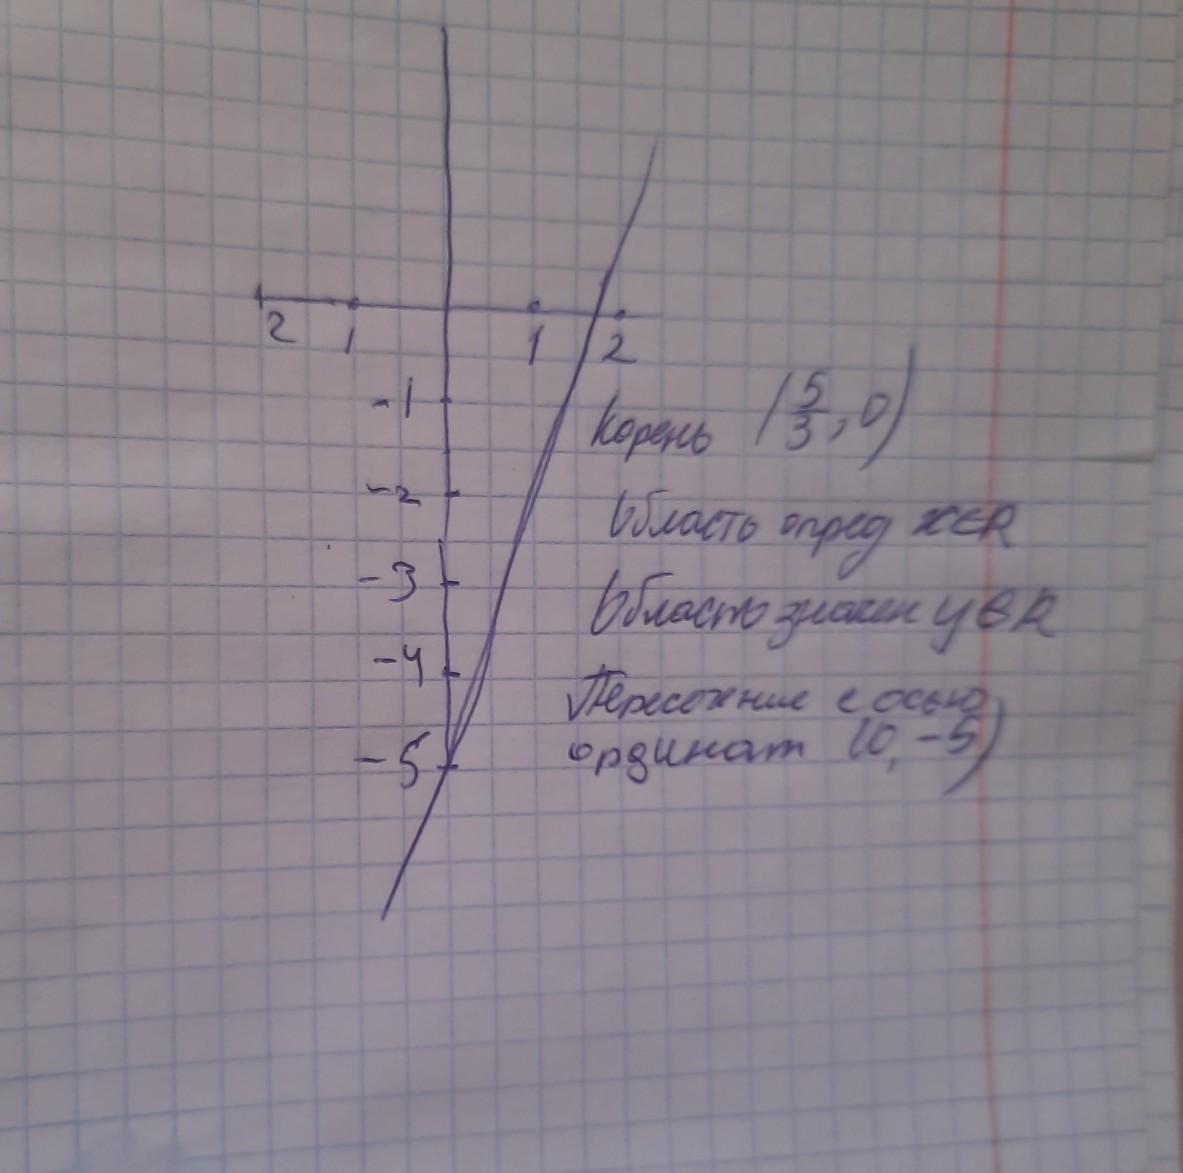 2 1 1 2
-1
Корень (5/3, 0)
-2
Область опред x∈R
-3
Область значен y∈R
-4
Пересожние с осью
-5 ординат (0, -5)